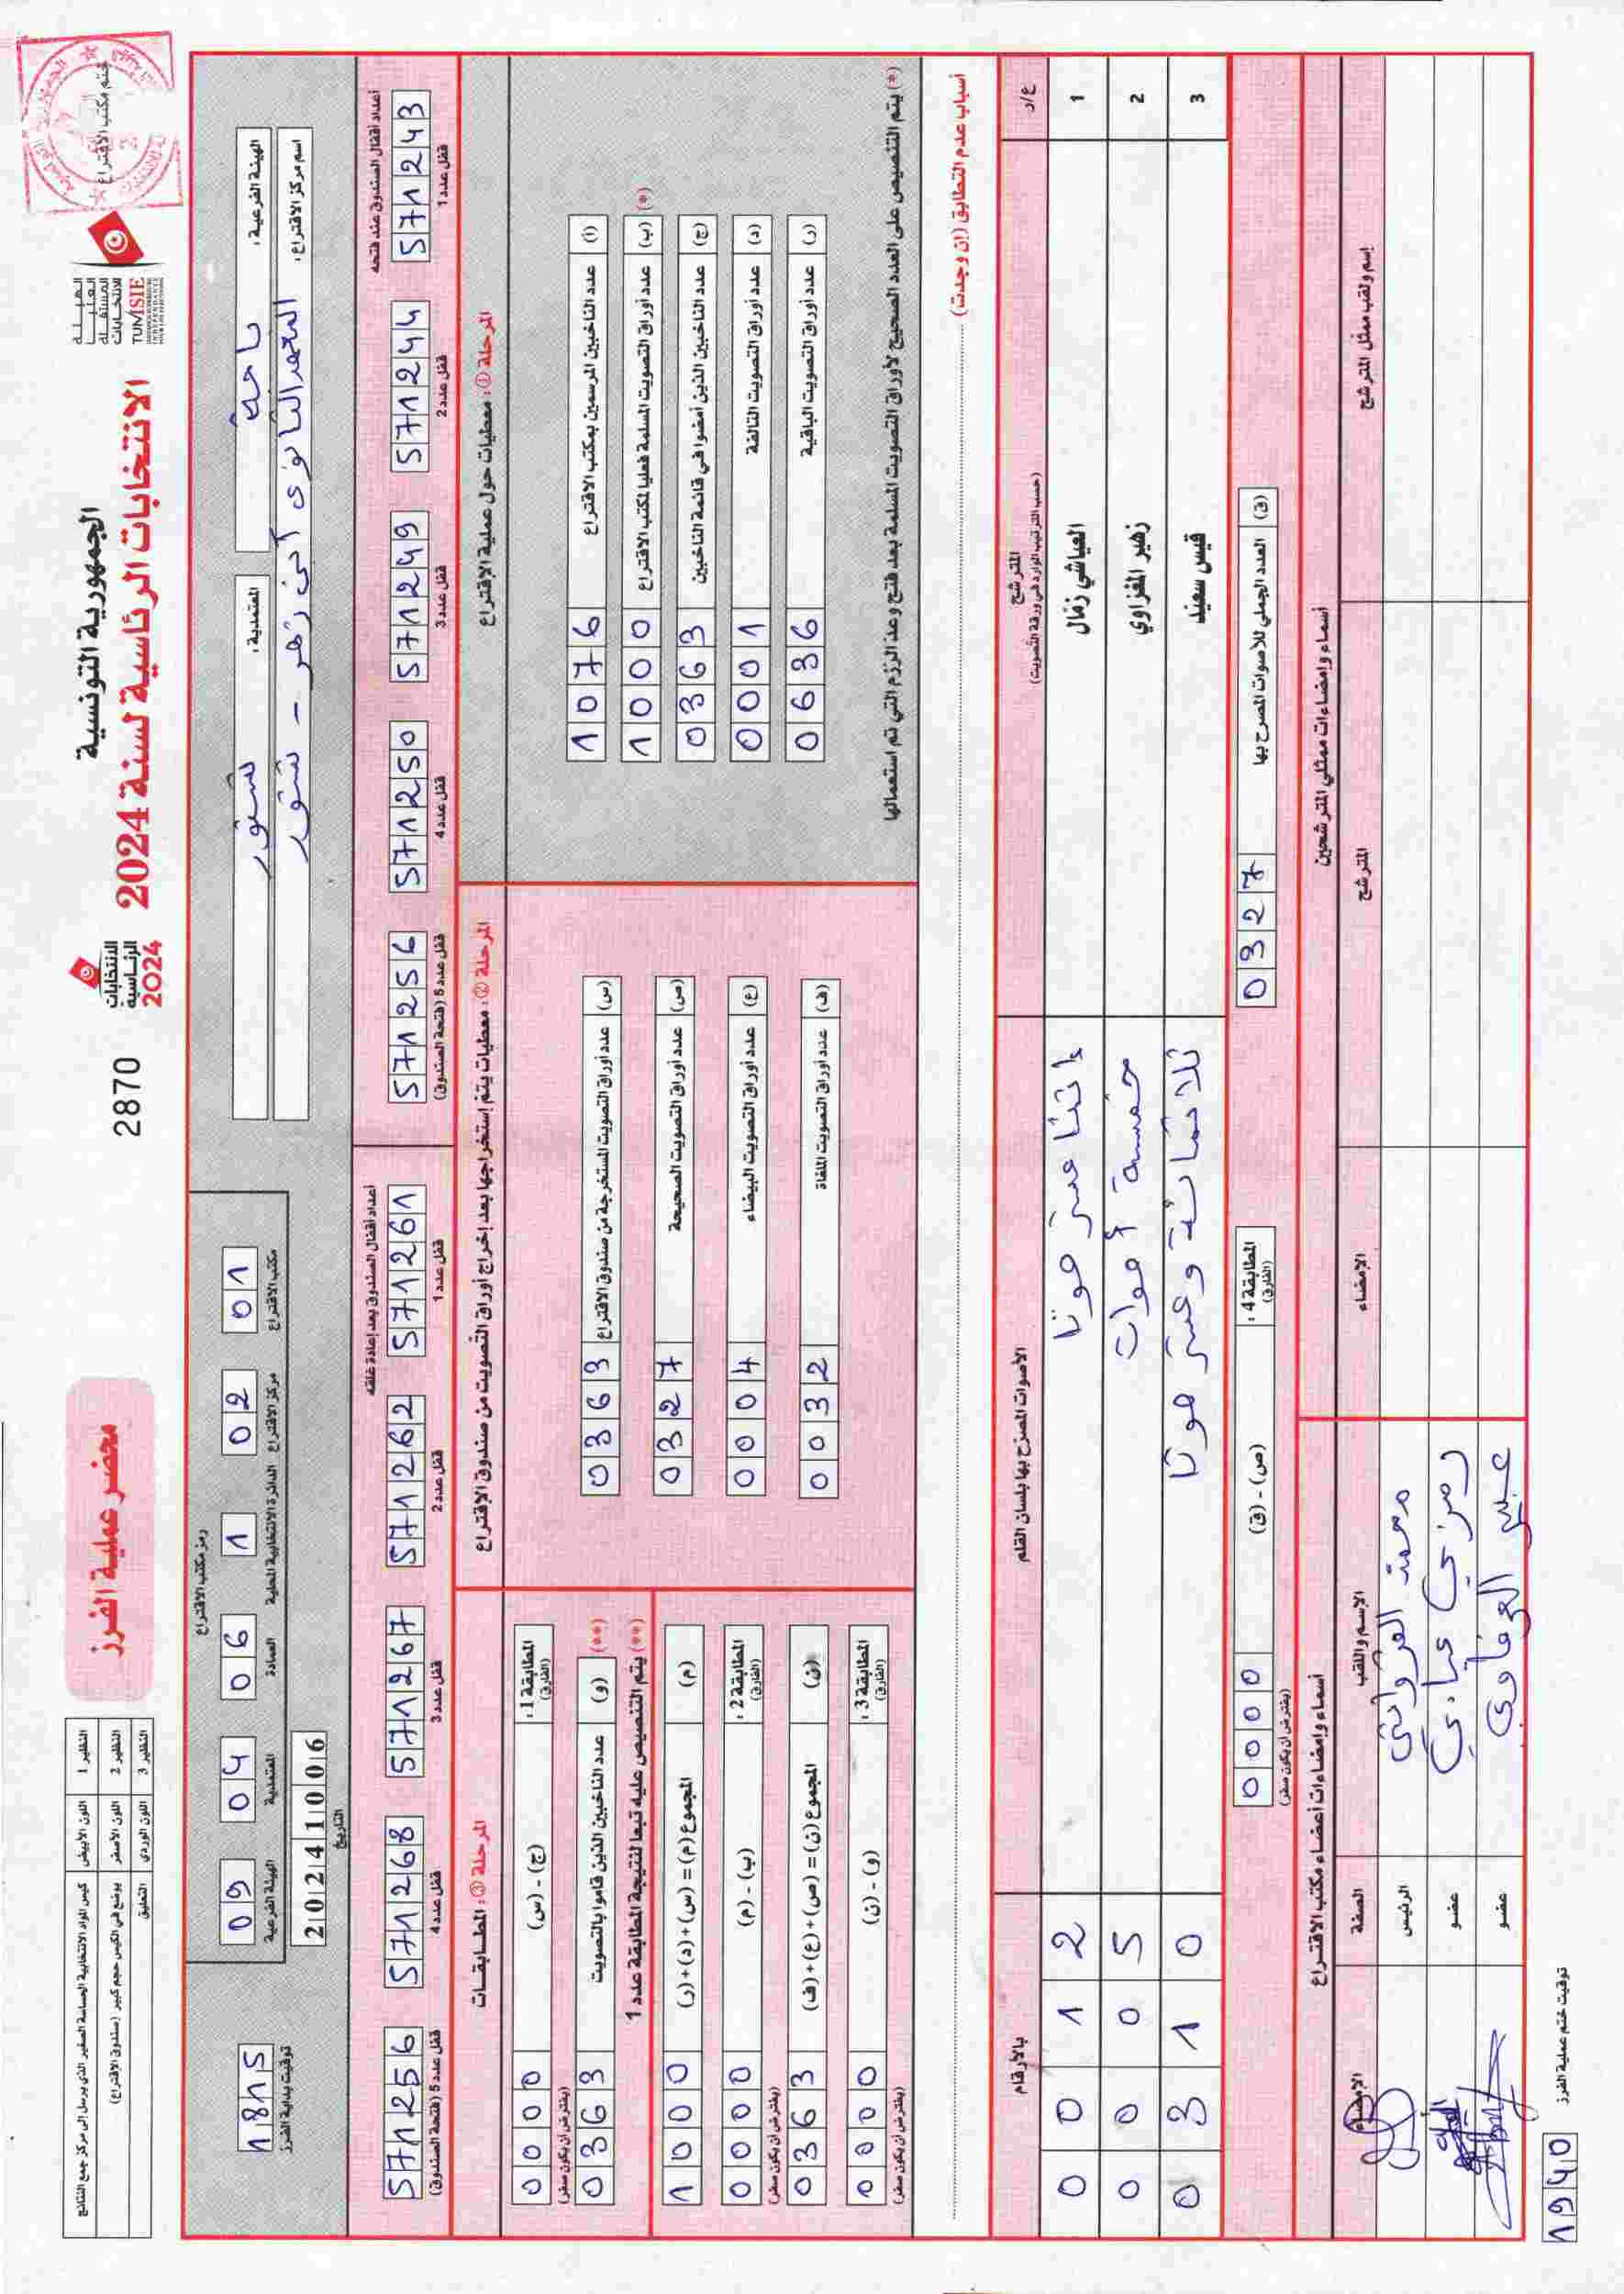 الجمهورية التونسية
الانتخابات الرئاسية لسنة 2024
الهيئة
العليا
المستقلة
للانتخابات
TUNISIE
ختم مكتب الاقتراع
الانتخابات
الرئاسية
2024
2870
محضر عملية الفرز
النظير 1 اللون الأبيض كيس المواد الانتخابية الحساسة الصغير الذي يرسل إلى مركز جمع النتائج
النظير 2 اللون الأصفر يوضع في الكيس حجم كبير (صندوق الإقتراع)
النظير 3 اللون الوردي التعليق
الهيئة الفرعية: باجة
المعتمدية: تستور
اسم مركز الاقتراع: المعهد الثانوي ابن زهر - تستور
رمز مكتب الاقتراع
مكتب الاقتراع 01
مركز الاقتراع 02
الدائرة الانتخابية المحلية 1
العمادة 06
المعتمدية 04
الهيئة الفرعية 09
20241006
التاريخ
1815
توقيت بداية الفرز
أعداد أقفال الصندوق عند فتحه
571243 قفل عدد 1
571244 قفل عدد 2
571249 قفل عدد 3
571250 قفل عدد 4
571256 قفل عدد 5 (فتحة الصندوق)
أعداد أقفال الصندوق بعد إعادة غلقه
571261 قفل عدد 1
571262 قفل عدد 2
571267 قفل عدد 3
571268 قفل عدد 4
571256 قفل عدد 5 (فتحة الصندوق)
المرحلة ①: معطيات حول عملية الإقتراع
(أ) عدد الناخبين المرسمين بمكتب الاقتراع 1076
(*) (ب) عدد أوراق التصويت المسلمة فعليا لمكتب الاقتراع 1000
(ج) عدد الناخبين الذين أمضوا في قائمة الناخبين 0363
(د) عدد أوراق التصويت التالفة 0001
(ر) عدد أوراق التصويت الباقية 0636
(*) يتم التنصيص على العدد الصحيح لأوراق التصويت المسلمة بعد فتح وعد الرزم التي تم استعمالها
المرحلة ②: معطيات يتم إستخراجها بعد إخراج أوراق التصويت من صندوق الإقتراع
(س) عدد أوراق التصويت المستخرجة من صندوق الاقتراع 0363
(ص) عدد أوراق التصويت الصحيحة 0327
(ع) عدد أوراق التصويت البيضاء 0004
(ف) عدد أوراق التصويت الملغاة 0032
المرحلة ③: المطابقات
المطابقة 1: (الفارق) (ج) - (س) 0000
(يفترض أن يكون صفر)
(**) (و) عدد الناخبين الذين قاموا بالتصويت 0363
(**) يتم التنصيص عليه تبعا لنتيجة المطابقة عدد 1
(م) المجموع (م) = (س)+(د)+(ر) 1000
المطابقة 2: (الفارق) (ب) - (م) 0000
(يفترض أن يكون صفر)
(ن) المجموع (ن) = (ص)+(ع)+(ف) 0363
المطابقة 3: (الفارق) (و) - (ن) 0000
(يفترض أن يكون صفر)
أسباب عدم التطابق (إن وجدت)
ع/ر المترشح الأصوات المصرح بها بلسان القلم بالأرقام
(حسب الترتيب الوارد في ورقة التصويت)
1 العياشي زمال إثنا عشر صوتا 0012
2 زهير المغزاوي خمسة أصوات 0005
3 قيس سعيد ثلاثمائة وعشر صوتا 0310
(ق) العدد الجملي للأصوات المصرح بها 0327
المطابقة 4: (الفارق) (ص) - (ق) 0000
(يفترض أن يكون صفر)
أسماء وإمضاءات ممثلي المترشحين
إسم ولقب ممثل المترشح المترشح الإمضاء
أسماء وإمضاءات أعضاء مكتب الاقتراع
الإسم واللقب الصفة الإمضاء
محمد الفرواتي الرئيس
رمزي عبادي عضو
عضو
توقيت ختم عملية الفرز
1940